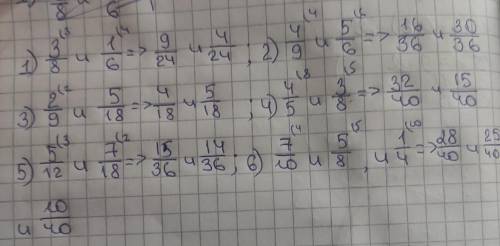 8 6
1) 3/8 (3 и 1/6 (4 => 9/24 и 4/24; 2) 4/9 (4 и 5/6 (6 => 16/36 и 30/36
3) 2/9 (2 и 5/18 => 4/18 и 5/18; 4) 4/5 (8 и 3/8 (5 => 32/40 и 15/40
5) 5/12 (3 и 7/18 (2 => 15/36 и 14/36; 6) 7/10 (4 и 5/8 (5, и 1/4 (10 => 28/40 и 25/40
и 10/40